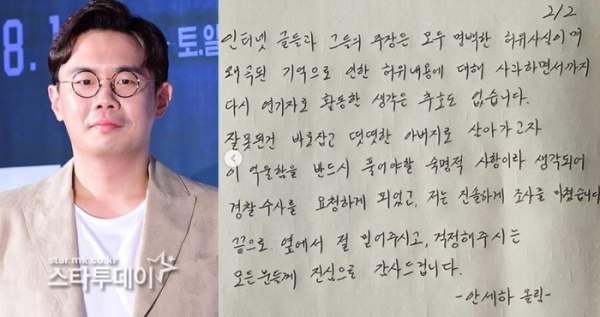 8.1
토.일
star.mk.co.kr
스타투데이
2/2
인터넷 글들과 그들의 주장은 모두 명백한 허위사실이며
왜곡된 기억으로 인한 허위내용에 대해 사과하면서까지
다시 연기자로 활동한 생각은 추호도 없습니다.
잘못된건 바로잡고 떳떳한 아버지로 살아가고자
이 억울함을 반드시 풀어야할 숙명적 사항이라 생각되어
경찰수사를 요청하게 되었고, 저는 진솔하게 조사를 마쳤습니다
끝으로 옆에서 절 믿어주시고, 걱정해주시는
모든분들께 진심으로 감사드립니다.
-안세하 올림-